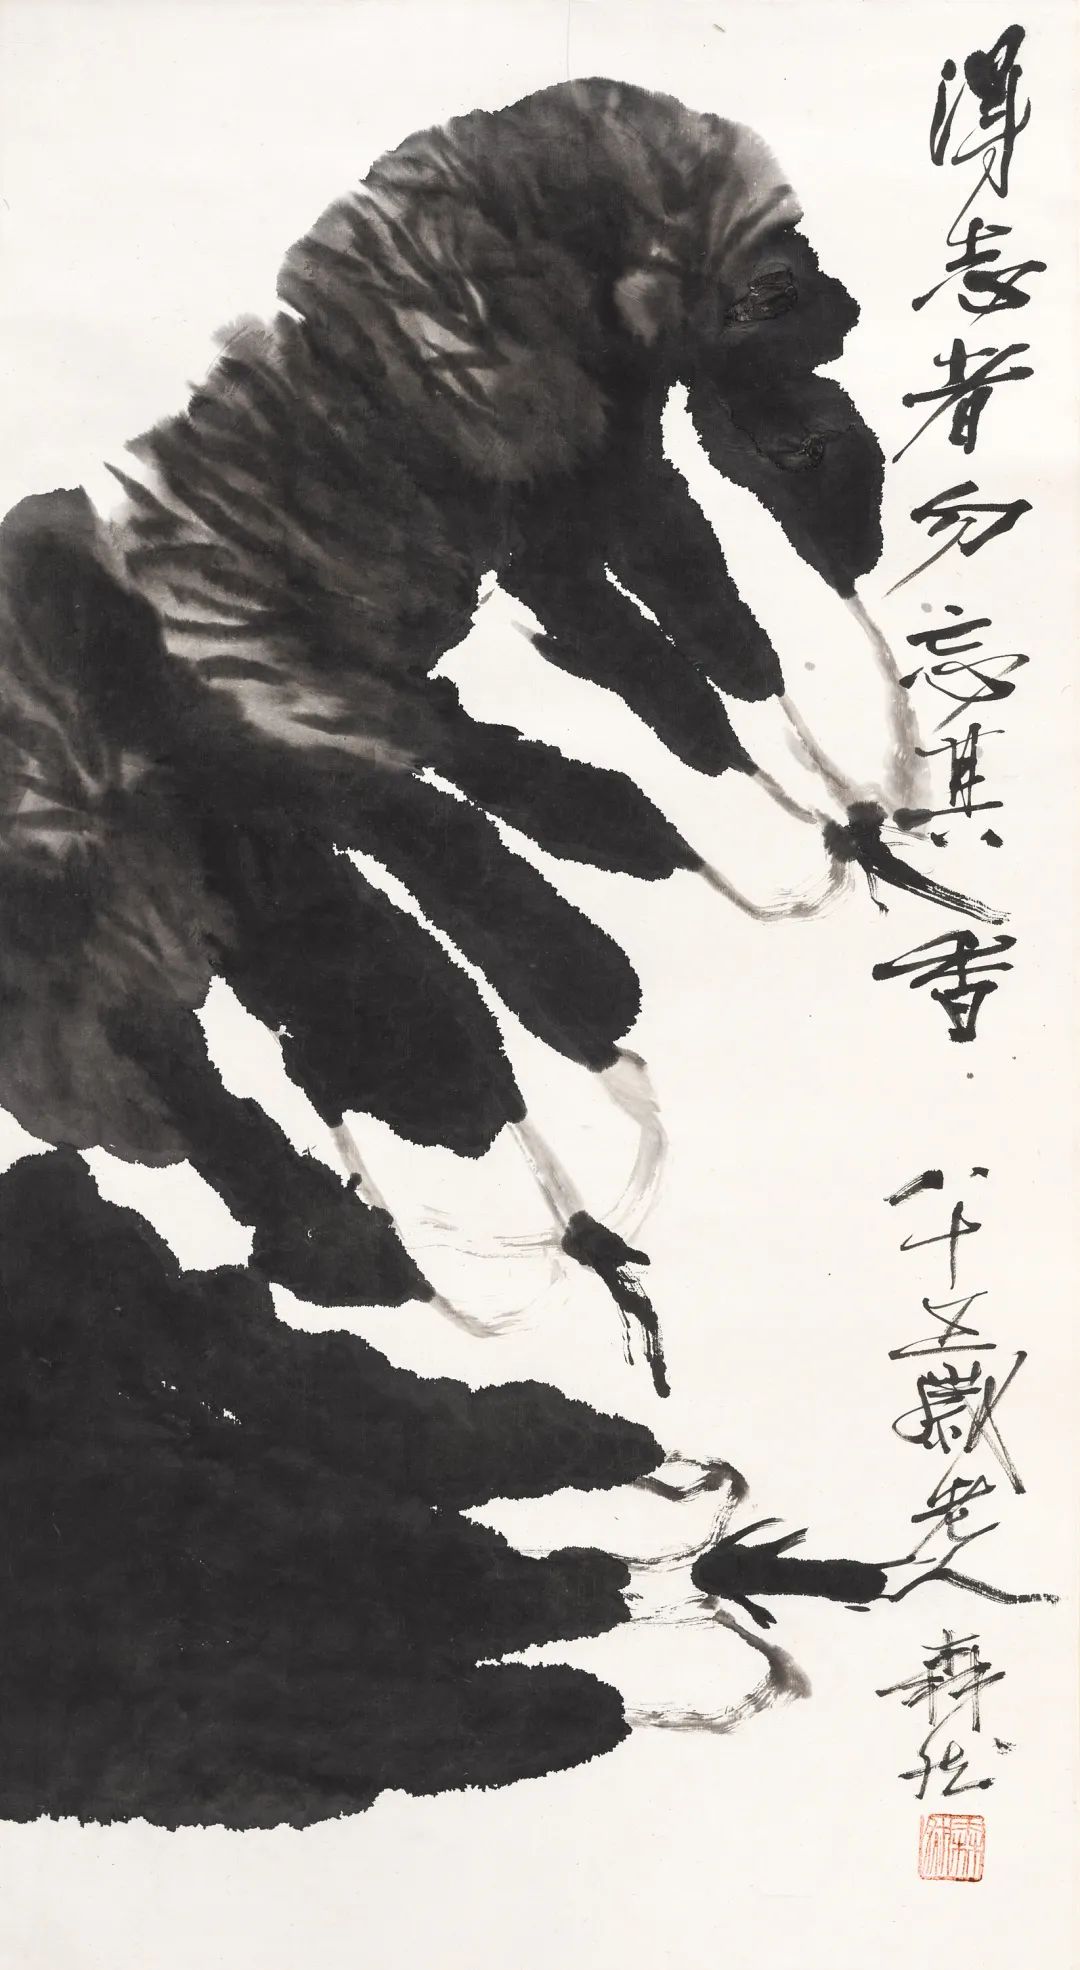 得志者勿忘其香
八十五歲老人